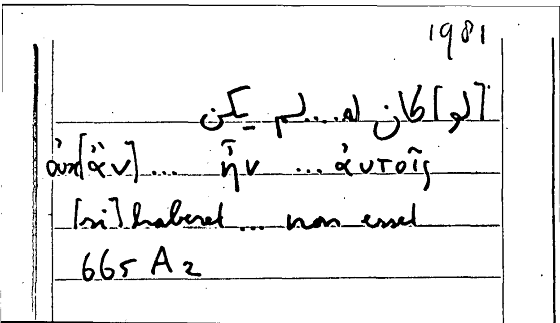 1981
[لو] كان له.... لم يكن
οὐκ[ἂν]... ἦν ... αὐτοῖς
[si] haberet... non esset
665 A 2